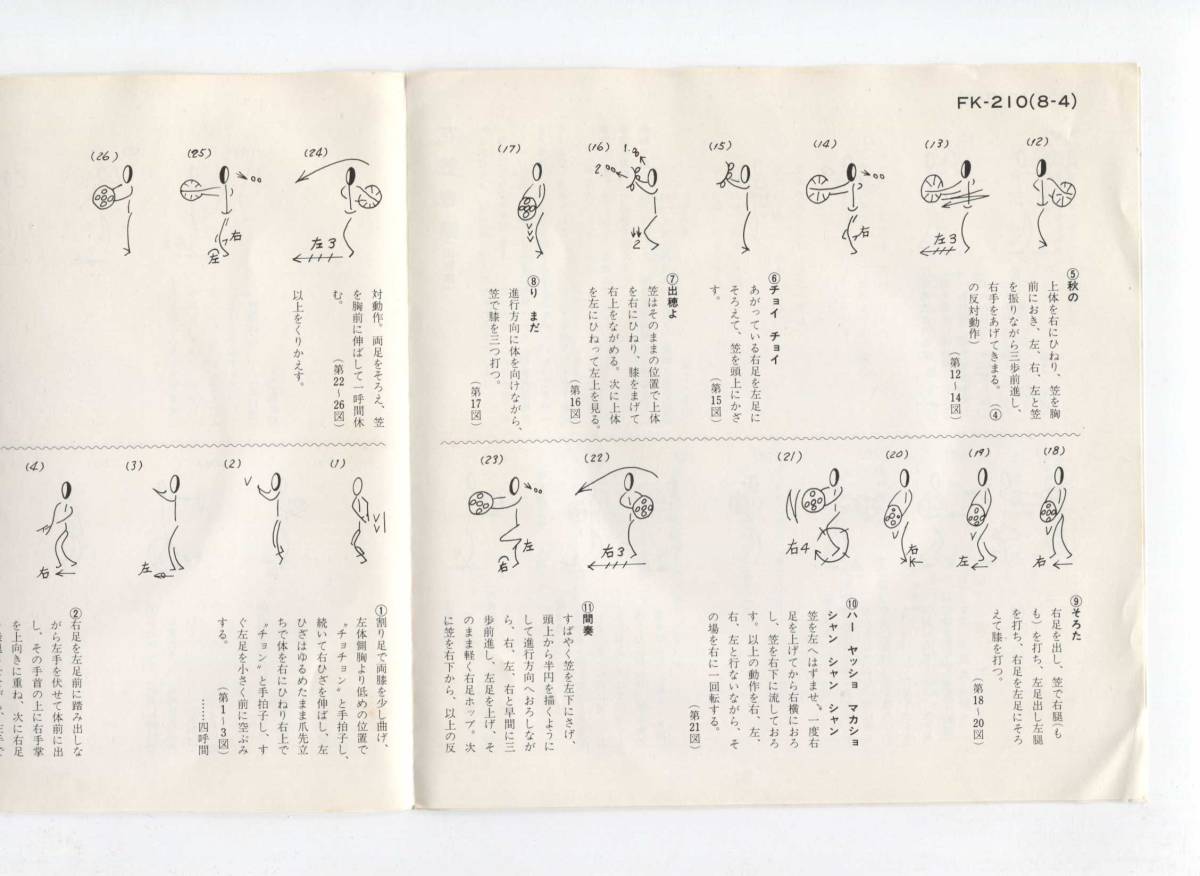 FK-210(8-4)
(12)
(13)
左3
(14)
右
(15)
(16)
1.8
2
2
(17)
⑤秋の
上体を右にひねり、笠を胸
前におき、左、右、左と笠
を振りながら三歩前進し、
右手をあげてきまる。(④
の反対動作)
(第12~14図)
⑥チョイ チョイ
あがっている右足を左足に
そろえて、笠を頭上にかざ
す。
(第15図)
⑦出穂よ
笠はそのままの位置で上体
を右にひねり、膝をまげて
右上をながめる。次に上体
を左にひねって左上を見る。
(第16図)
⑧り まだ
進行方向に体を向けながら、
笠で膝を三つ打つ。
(第17図)
(24)
左3
(25)
右
左
(26)
対動作。両足をそろえ、笠
を胸前に伸ばして一呼間休
む。
(第22~26図)
以上をくりかえす。
(18)
右
(19)
左
(20)
右
(21)
右4
(22)
右3
(23)
左
右
⑨そろた
右足を出し、笠で右腿(も
も)を打ち、左足出し左腿
を打ち、右足を左足にそろ
えて膝を打つ。
(第18~20図)
⑩ハー ヤッショ マカショ
シャン シャン シャン
笠を左へはずませ、一度右
足を上げてから右横におろ
し、笠を右下に流しておろ
す。以上の動作を右、左、
右、左と行ないながら、そ
の場を右に一回転する。
(第21図)
⑪間奏
すばやく笠を左下にさげ、
頭上から半円を描くように
して進行方向へおろしなが
ら、右、左、右と早間に三
歩前進し、左足を上げ、そ
のまま軽く右足ホップ。次
に笠を右下から、以上の反
(1)
(2)
(3)
左
(4)
右
①割り足で両膝を少し曲げ、
左体側胸より低めの位置で
〝チョチョン〟と手拍子し、
続いて右ひざを伸ばし、左
ひざはゆるめたまま爪先立
ちで体を右にひねり右上で
〝チョン〟と手拍子し、す
ぐ左足を小さく前に空ぶみ
する。 (第1~3図)
……四呼間
②右足を左足前に踏み出しな
がら左手を伏せて体前に出
し、その手首の上に右手掌
を上向きに重ね、次に右足